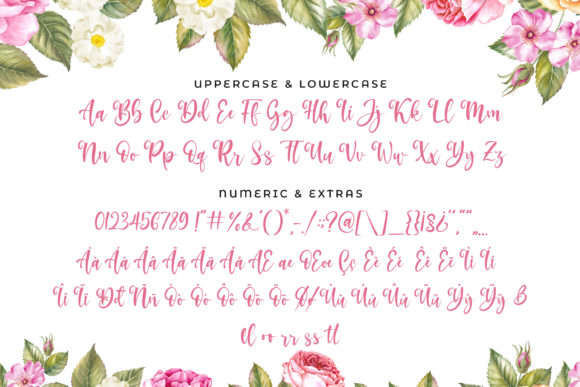 UPPERCASE & LOWERCASE
Aa Bb Cc Dd Ee Ff Gg Hh Ii Jj Kk Ll Mm
Nn Oo Pp Qq Rr Ss Tt Uu Vv Ww Xx Yy Zz
NUMERIC & EXTRAS
0123456789 !"#%&'()*,-./:;?@[\]_{}¡§¿'',"",,...
Àà Áá Ââ Ãã Ää Åå ÆÆ æ Œœ Çç Èè Éé Êê Ëë Ìì Íí
Îî Ïï Ðđ Ññ Òò Óó Ôô Õõ Öö Øø Ùù Úú Ûû Üü Ýý Ÿÿ ß
el oo rr ss tt